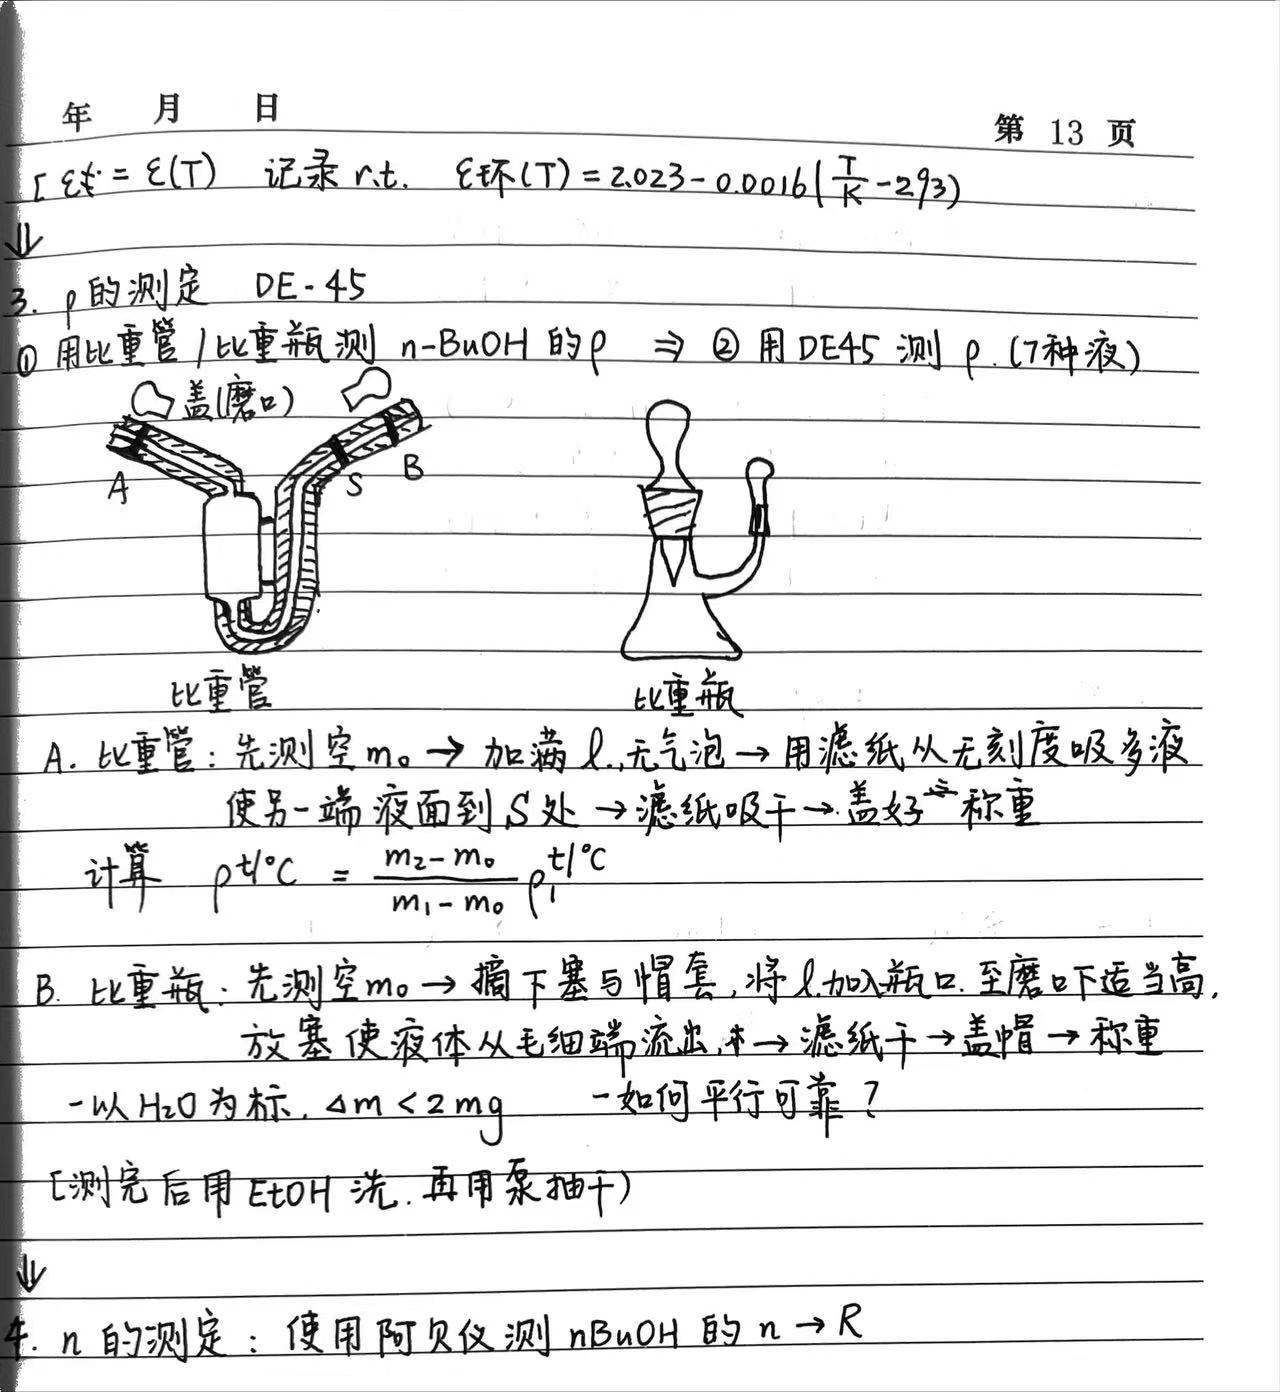 年 月 日
第 13 页
[ ε标 = ε(T) 记录 r.t. ε环(T) = 2.023 - 0.0016(T/K - 293)
⇓
3. ρ的测定 DE-45
① 用比重管/比重瓶测 n-BuOH 的ρ ⇒ ② 用DE45 测 ρ. (7种液)
盖(磨口)
A S B
比重管 比重瓶
A. 比重管: 先测空m₀ → 加满 l., 无气泡 → 用滤纸从无刻度吸多液
使另一端液面到S处 → 滤纸吸干 → 盖好 称重
计算 ρ^t/°C = (m₂-m₀)/(m₁-m₀) ρ₁^t/°C
B. 比重瓶: 先测空m₀ → 摘下塞与帽套, 将l.加入瓶口. 至磨口下适当高,
放塞使液体从毛细端流出, → 滤纸干 → 盖帽 → 称重
-以H₂O为标. Δm < 2mg -如何平行可靠?
[测完后用EtOH 洗. 再用泵抽干)
⇓
4. n 的测定: 使用阿贝仪测 nBuOH 的 n → R